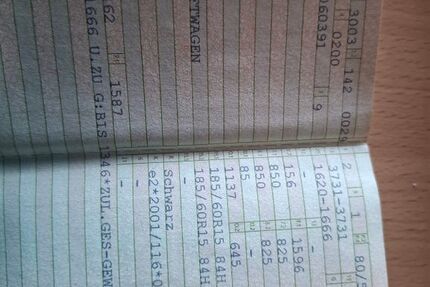 3003 142 0029 2 1 80/5
0200 3731-3731
060391 9 1620-1666
-
156 1596
850 825
850 825
85 -
1137 645
185/60R15 84H
TWAGEN 185/60R15 84H
- -
Schwarz
e2*2001/116*0
-
62 1587 -
1666 U.ZU G:BIS 1346*ZUL.GES-GEW